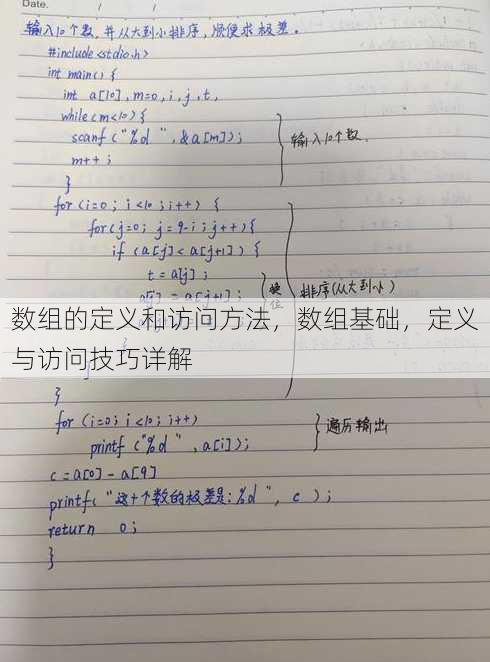 Date.
输入10个数,并从大到小排序,顺便求极差。
#include <stdio.h>
int main() {
int a[10], m=0, i, j, t,
while(m<10){
scanf ("%d ", &a[m]);
m++;
}
输入10个数.
for (i=0; i<10; i++) {
for(j=0; j=9-i; j++){
if (a[j]<a[j+1]) {
t = a[j];
a[j] = a[j+1];
换位
排序(从大到小)
数组的定义和访问方法，数组基础，定义
与访问技巧详解
}
for (i=0; i<10; i++)
printf ("%d ", a[i]);
遍历输出
c = a[0] - a[9]
printf( "这十个数的极差是:%d", c );
return 0;
}